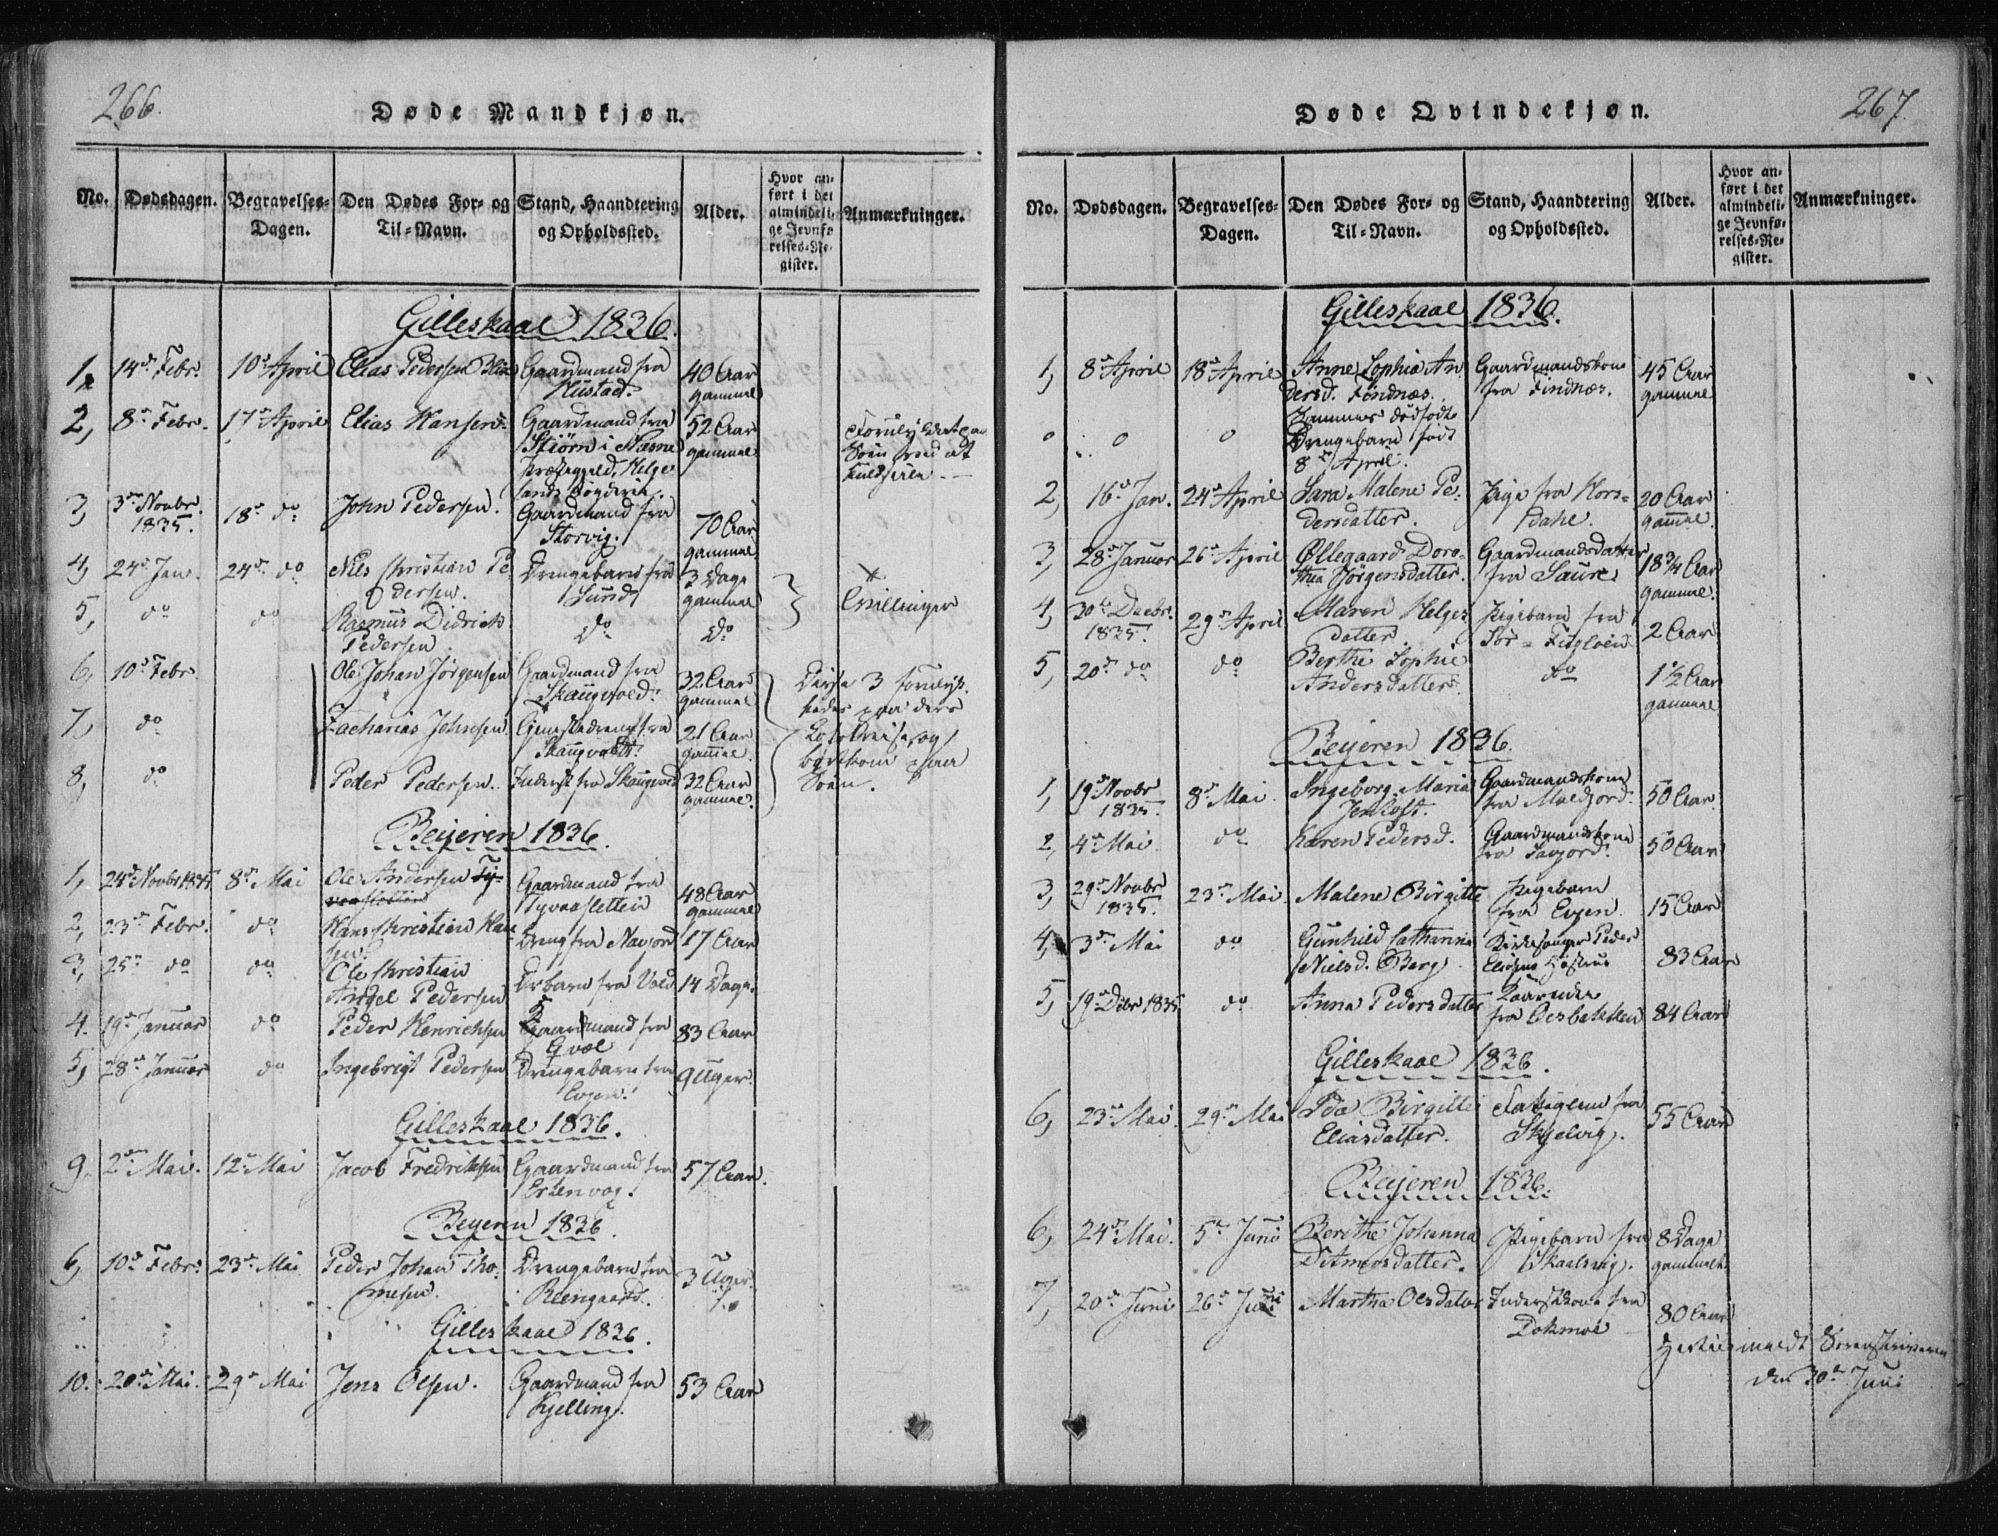 266.
Døde Mandkjøn.
No.
Dødsdagen.
Begravelses-
Dagen.
Den Dødes For- og
Til-Navn.
Stand, Haandtering
og Opholdssted.
Alder.
Hvor an-
ført i det
almindeli-
ge Jevnfø
relses-Re-
gister.
Anmærkninger.
Gilleskaal 1836.
1, 14de Febr. 10de April Elias Pedersen Gaardmand fra 40 Aar
Hustad. gammel
2, 8de Febr. 17de April Elias Hansen Gaardmand fra 52 Aar
Stiørn i Næsne gammel
Præstegjeld, Helge
lands Fogderie.
3, 3de Novbr. 18de do John Pedersen. Gaardmand fra 70 Aar
1835. Storvig. gammel
4, 24de Jan. 24de do Nils Christian Pe Drengebarn fra 3 Dage
dersen. Sund gammel
Tvillinger
5, do do Rasmus Didrich do do
Pedersen
6, 10de Febr. Ole Johan Jørgensen Gaardmand fra 32 Aar
Skaugvold. gammel
Disse 3 forulyk-
kedes paa deres
7, do Zacharias Johnsen Tjenestedreng fra 21 Aar
Skaugvold. gammel.
og
bortkom paa
Søen.
8, do Peder Pedersen. Inderst fra Skaugvold 32 Aar
gammel.
Beijeren 1836.
1, 24de Novbr 1835 8de Mai Ole Andersen Ty- Gaardmand fra 48 Aar
Tyvaasletten gammel
2, 23de Febr. do Hans Christian Han Dreng fra Navjord 17 Aar
sen
3, 25de do do Ole Christian
Andel Pedersen Drbarn fra Vold 14 Dage.
4. 19de Januar do Peder Henrichsen Gaardmand fra 83 Aar
Qvæl
5, 28de Januar do Ingebrigt Pedersen Drengebarn fra 9 Uger.
Evjen.
Gilleskaal 1836.
9. 2den Mai. 12te Mai Jacob Fredriksen Gaardmand fra 57 Aar.
Ertenvog.
Beyeren 1836
6, 10de Febr. 23de Mai Peder Johan Tho- Drengebarn fra 3 Uger.
mesen. Reengaard.
Gilleskaal 1836.
10. 20de Mai. 29de Mai Jens Olsen. Gaardmand fra 53 Aar
Kjelling.
267.
Døde Qvindekjøn.
No.
Dødsdagen.
Begravelses-
Dagen.
Den Dødes For- og
Til-Navn.
Stand, Haandtering
og Opholdssted.
Alder.
Hvor an-
ført i det
almindeli-
ge Jevnfø-
relses-Re-
gister.
Anmærkninger.
Gilleskaal 1836.
1, 8de April 18de April Anne Sophia An Gaardmandskone 45 Aar
dersd. Findnæs. fra Findnæs. gammel
o o o Sammes dødfødte
Drengebarn født
8de April.
2, 16de Jan. 24de April Sara Malene Pe- Pige fra Hors- 20 Aar
dersdatter. dahl. gammel.
3, 28de Januar 26de April Øllegaard Doro- Gaardmandsdatter 18 3/4 Aar
thea Jørgensdatter. fra Saure gammel.
4, 30te Decbr. 29de April Maren Helges Pigebarn fra 2 Aar
1835. datter. Sør-Fugløen
5, 20de do do Berthe Sophie do 1 1/2 Aar
Andersdatter. gammel
Beijeren 1836.
1, 19de Novbr 8de Mai. Ingeborg Maria Gaardmandskone 50 Aar.
1835. Jentoft. fra Moldjord.
2, 4de Mai do Karen Pedersd. Gaardmandskone 50 Aar
fra
3, 29de Novbr 23de Mai. Malene Birgitte Pigebarn 15 Aar
1835. fra Evjen.
4, 3de Mai do Gunhild Catharina Kirkesanger Peder
Nielsd. Berg Hustrue 83 Aar
5, 19de Debr 1835 do Anna Pedersdatter Kaarenke
fra Oesbakken 84 Aar
Gilleskaal 1836.
6, 23de Mai. 29de Mai Ida Birgitte fra 55 Aar
Eliasdatter. Skjelvig.
Beijeren 1836.
6, 24de Mai. 5te Juni Berithe Johanna Pigebarn fra 8 Dage
Ditmersdatter. Skaalsvig. gammelt.
7, 20de Juni 26de Juni Martha Olsdatter Inderstkone fra 80 Aar
Dokmoe
Hertil meldt Sorenskriveren
den 30te Juni